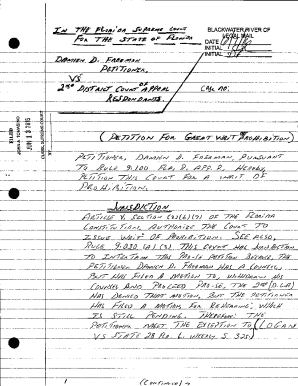 IN THE FLORIDA SUPREME COURT
FOR THE STATE OF FLORIDA
BLACKWATER RIVER CF
LEGAL MAIL
DATE
INITIAL
INITIAL
DAMIEN D. FREEMAN
PETITIONER,
VS
2ND DISTRICT COURT APPEAL
RESPONDANTS.
CASE NO:
FILED
JUN 13 2016
(PETITION FOR GREAT WRIT OF PROHIBITION)
PETITIONER, DAMIEN D. FREEMAN, PURSUANT
TO RULE 9.100 FLA. R. APP. P. HEREBY
PETITION THIS COURT FOR A WRIT OF
PROHIBITION.
JURISDICTION
ARTICLE V. SECTION OF THE FLORIDA
CONSTITUTION, AUTHORIZE THE COURT TO
ISSUE WRIT OF PROHIBITION. SEE ALSO,
RULE 9.030 (a) (3). THIS COURT HAS JURISDICTION
TO ENTERTAIN THIS PRO-SE PETITION BECAUSE, THE
PETITIONER DAMIEN D. FREEMAN HAS A COUNSEL,
BUT HAS FILED A MOTION TO WITHDRAW HIS
COUNSEL AND PROCEED PRO-SE, THE 2ND D.C.A.
HAS DENIED THAT MOTION, BUT THE PETITIONER
HAS FILED A MOTION FOR REHEARING, WHICH
IS STILL PENDING. THEREFORE THE
PETITIONER MEET THE EXCEPTION TO (LOGAN
VS STATE 28 FLA. L. WEEKLY S. 325)
1
(CONTINUE)→